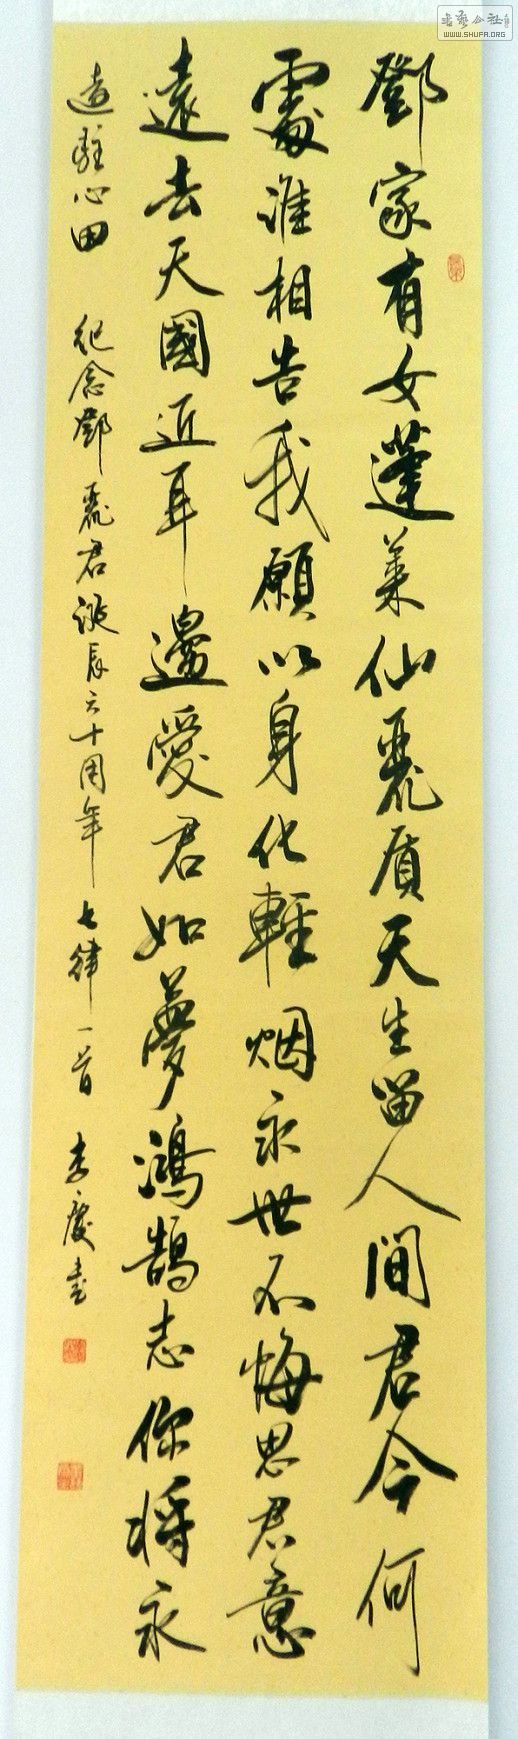 鄧家有女蓬萊仙麗質天生留人間君今何
處誰相告我願以身化輕烟永世不悔思君意
遠去天國近耳邊愛君如夢鴻鵠志你將永
遠駐心田 紀念鄧麗君誕辰六十周年 七律一首 李慶書
書藝公社
WWW.SHUFA.ORG